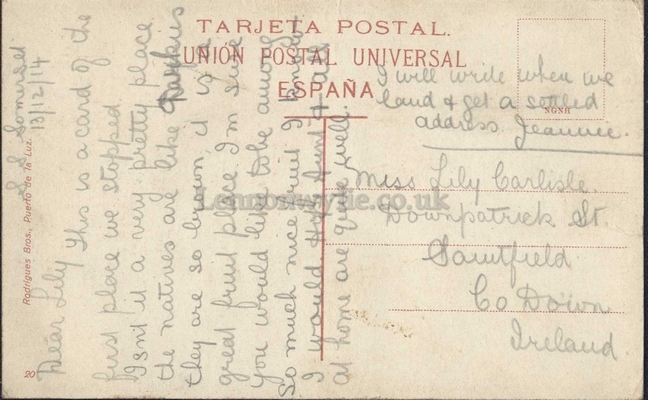 TARJETA POSTAL.
UNIÓN POSTAL UNIVERSAL
ESPAÑA
NGNR
I will write when we
land & get a settled
address Jeannie.
Miss Lily Carlisle.
Downpatrick St.
Saintfield
Co Down
Ireland
S.S. Somerset
13/12/14
Dear Lily This is a card of the
first place we stopped.
Isnt it a very pretty place
the natives are like
they are so brown, it is a
great fruit place I'm sure
you would like to be among
so much nice fruit I
I would Aunt & all
at home are quite well.
Rodrigues Bros., Puerto de la Luz.
20